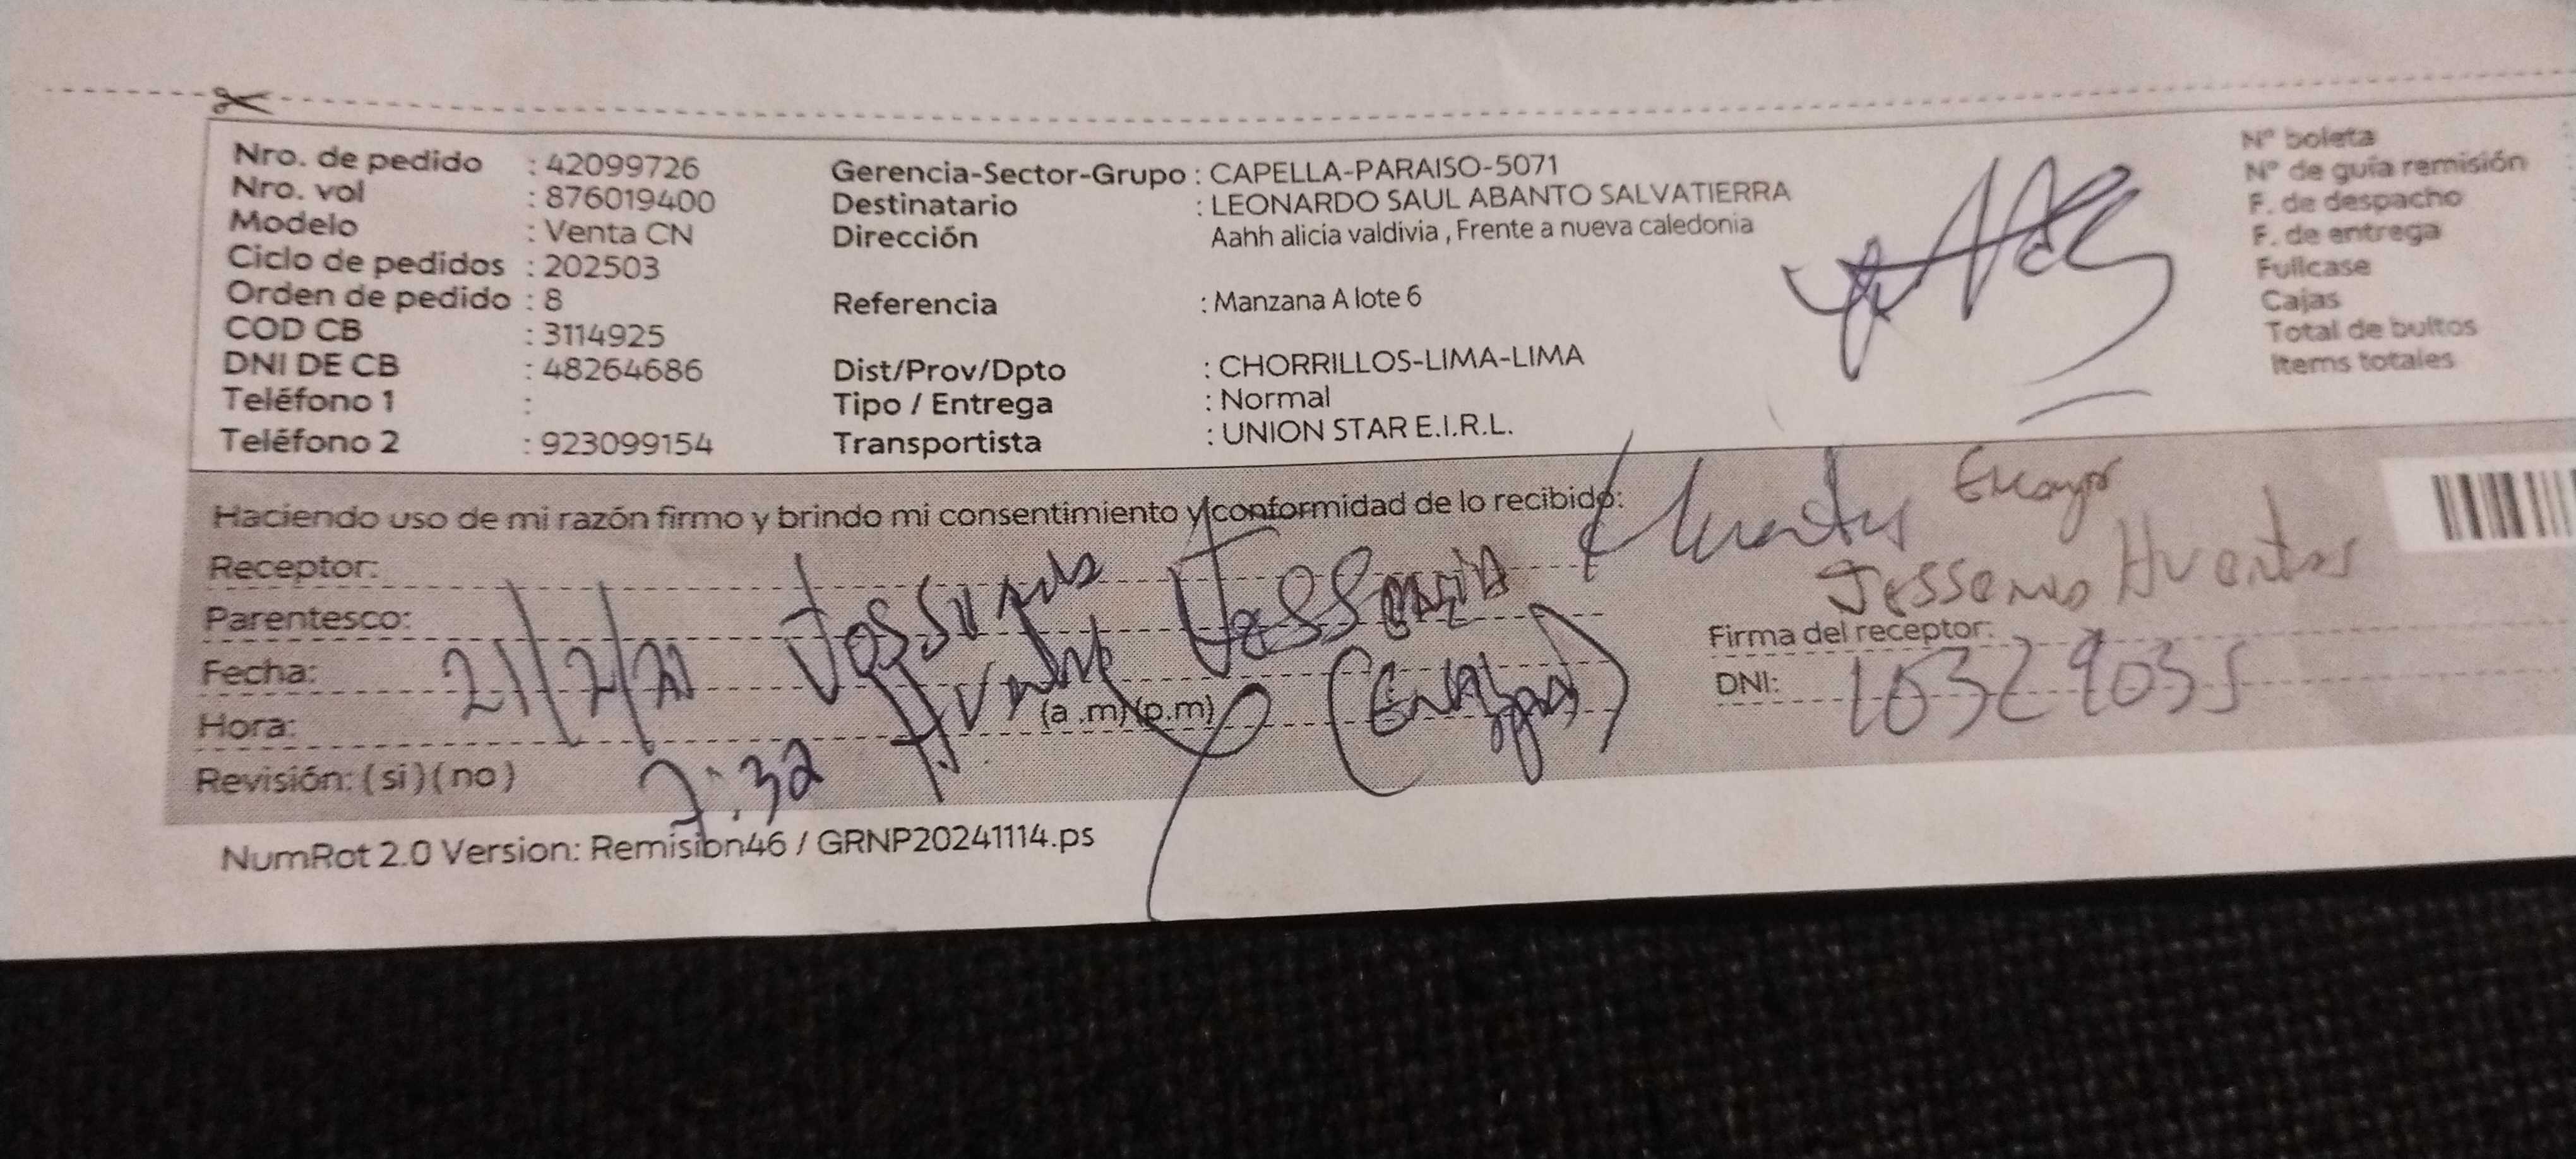 Nro. de pedido : 42099726
Nro. vol : 876019400
Modelo : Venta CN
Ciclo de pedidos : 202503
Orden de pedido : 8
COD CB : 3114925
DNI DE CB : 48264686
Teléfono 1 :
Teléfono 2 : 923099154
Gerencia-Sector-Grupo : CAPELLA-PARAISO-5071
Destinatario : LEONARDO SAUL ABANTO SALVATIERRA
Dirección Aahh alicia valdivia , Frente a nueva caledonia
Referencia : Manzana A lote 6
Dist/Prov/Dpto : CHORRILLOS-LIMA-LIMA
Tipo / Entrega : Normal
Transportista : UNION STAR E.I.R.L.
N° boleta
N° de guía remisión
F. de despacho
F. de entrega
Fullcase
Cajas
Total de bultos
Items totales
Haciendo uso de mi razón firmo y brindo mi consentimiento y conformidad de lo recibido:
Receptor:
Parentesco:
Fecha: 21/2/
Hora: (a .m) (p.m)
:32
Revisión: ( si ) ( no )
Huertas
Firma del receptor:
DNI: 10329035
NumRot 2.0 Version: Remision46 / GRNP20241114.ps